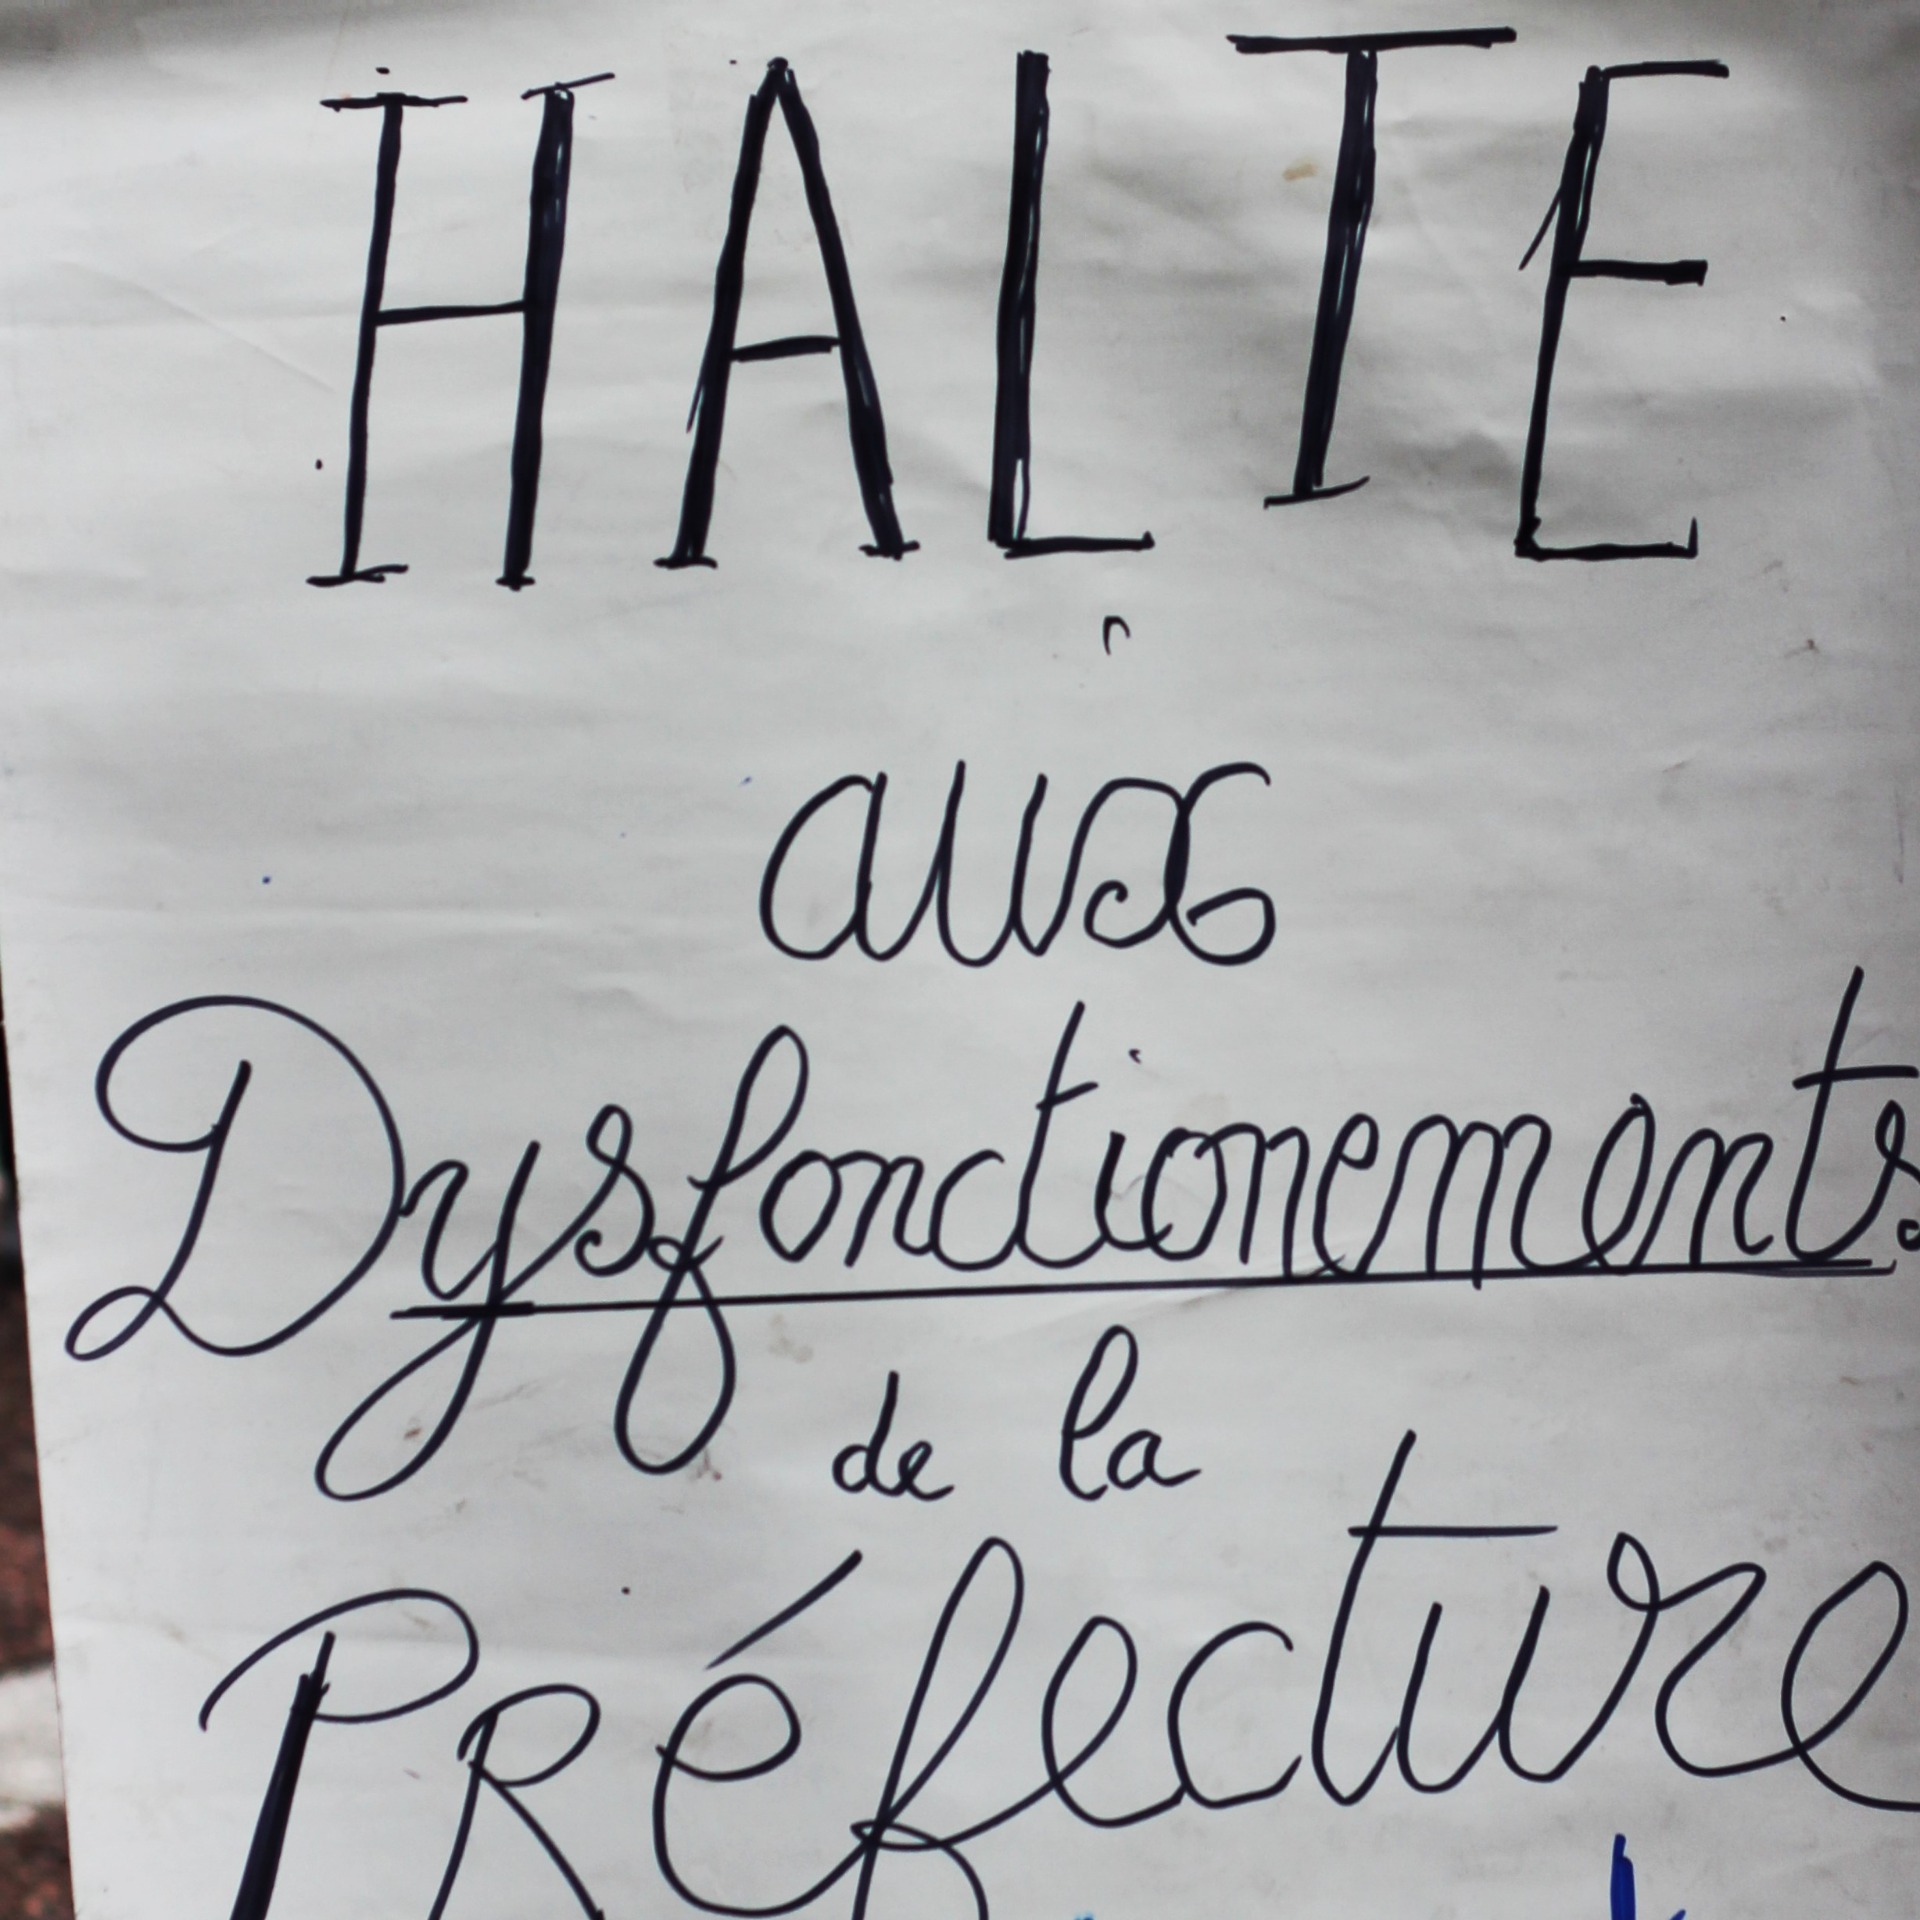 HALTE
aux
Dysfonctionements
de la
PRéfecture